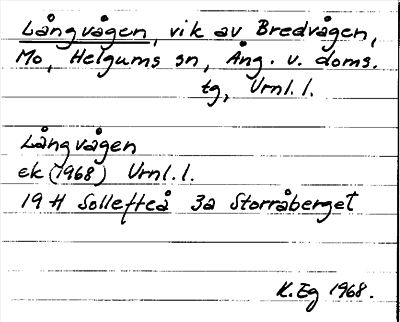 Långvågen, vik av Bredvågen,
Mo, Helgums sn, Ång. v. doms.
tg, Urnl. l.
Långvågen
ek (1968) Urnl. l.
19 H Sollefteå 3a Storråberget
K. Eg 1968.